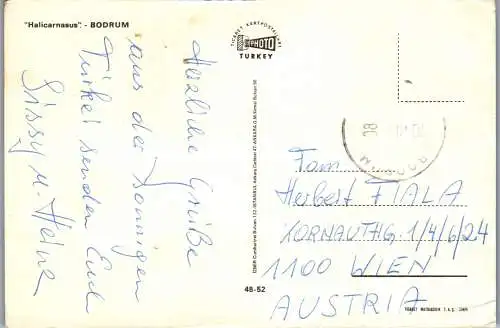 "Halicarnasus". - BODRUM
Herzliche Grüße
aus der sonnigen
Türkei senden Euch
Sissy u. Heinz
TICARET KARTPOSTALLARI
PHOTO
TURKEY
48-52
BODRUM
Fam.
Herbert FIALA
KORNAUTHG. 1/4/6/24
1100 WIEN
AUSTRIA